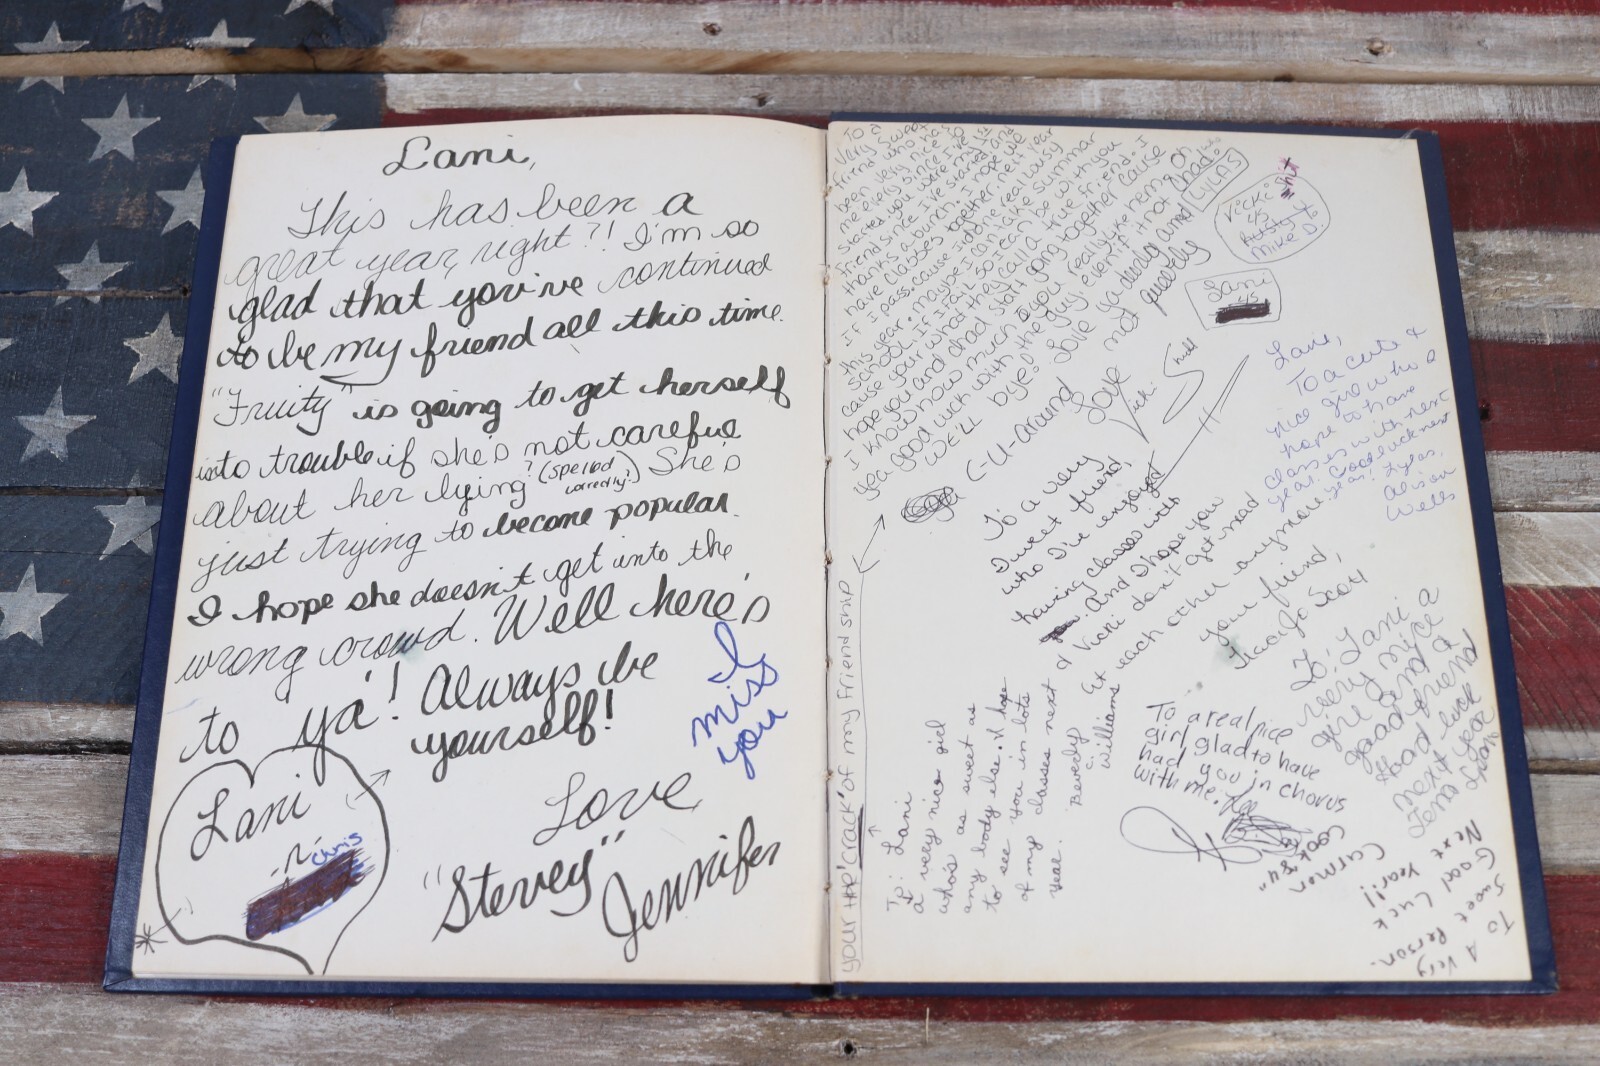 Lani,
This has been a
great year, right?! I'm so
glad that you've continued
to be my friend all this time.
"Fruity" is going to get herself
into trouble if she's not careful
about her lying? (spelled correctly?) She's
just trying to become popular.
I hope she doesn't get into the
wrong crowd. Well here's
to ya'! Always be
yourself!
I
miss
you
Love
"Stevey"
Jennifer
Lani
'n
Chris
To a
very sweet
friend who has
been very nice to
me every since I've
started you were my 1st
friend since I've started and
thanks a bunch. I hope we
have classes together next year
If I pass, cause I did real lousy
this year. maybe I can take summar
school if I fail so I can be with you
cause your what they call a true friend. I
hope you and chad start going together cause
I know how much you really like him, oh
yea good luck with the guy even if it's not Chad
WE'LL bye! Love ya dearly and
not queerly
LYLAS
C-U-Around
Love
Vicki
Vicki
vs
Rusty &
Mike D.
Lani
vs
Lani,
To a cute &
nice girl who I
hope to have
classes with next
year. Good luck next
year! Lylas,
Alison
Wells
To a very
sweet friend,
who I've enjoyed
having classes with
you. And I hope you
& Vicki don't get mad
at each other anymore
your friend,
Scott
your the 'crack' of my friend ship
To: Lani
a very nice girl
who's as sweet as
any body else. I hope
to see you in lots
of my classes next
year.
Beverly
C.
Williams
To a real nice
girl glad to have
had you in chorus
with me.
To: Lani
very nice a
girl and a
good friend
Good luck
next year
Love
To A Very
Sweet Person.
Good Luck
Next Year!!
Carmen
"Cookey"